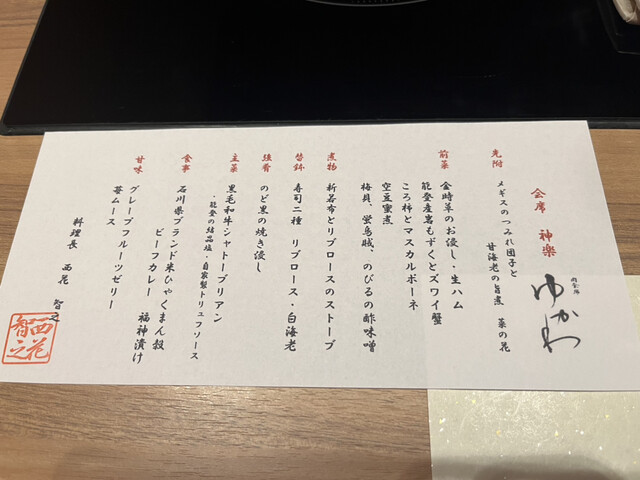 肉会席
ゆかわ
会席 神楽
先附
メギスのつみれ団子と
甘海老の旨煮 菜の花
前菜
金時草のお浸し・生ハム
能登産岩もずくとズワイ蟹
ころ柿とマスカルポーネ
空豆蜜煮
梅貝、蛍烏賊、のびるの酢味噌
煮物
新若布とリブロースのストーブ
笞鉢
寿司二種 リブロース・白海老
強肴
のど黒の焼き浸し
主菜
黒毛和牛シャトーブリアン
・能登の結晶塩・自家製トリュフソース
食事
石川県ブランド米ひゃくまん穀
ビーフカレー 福神漬け
甘味
グレープフルーツゼリー
苺ムース
料理長 西花 智之
西花
智之